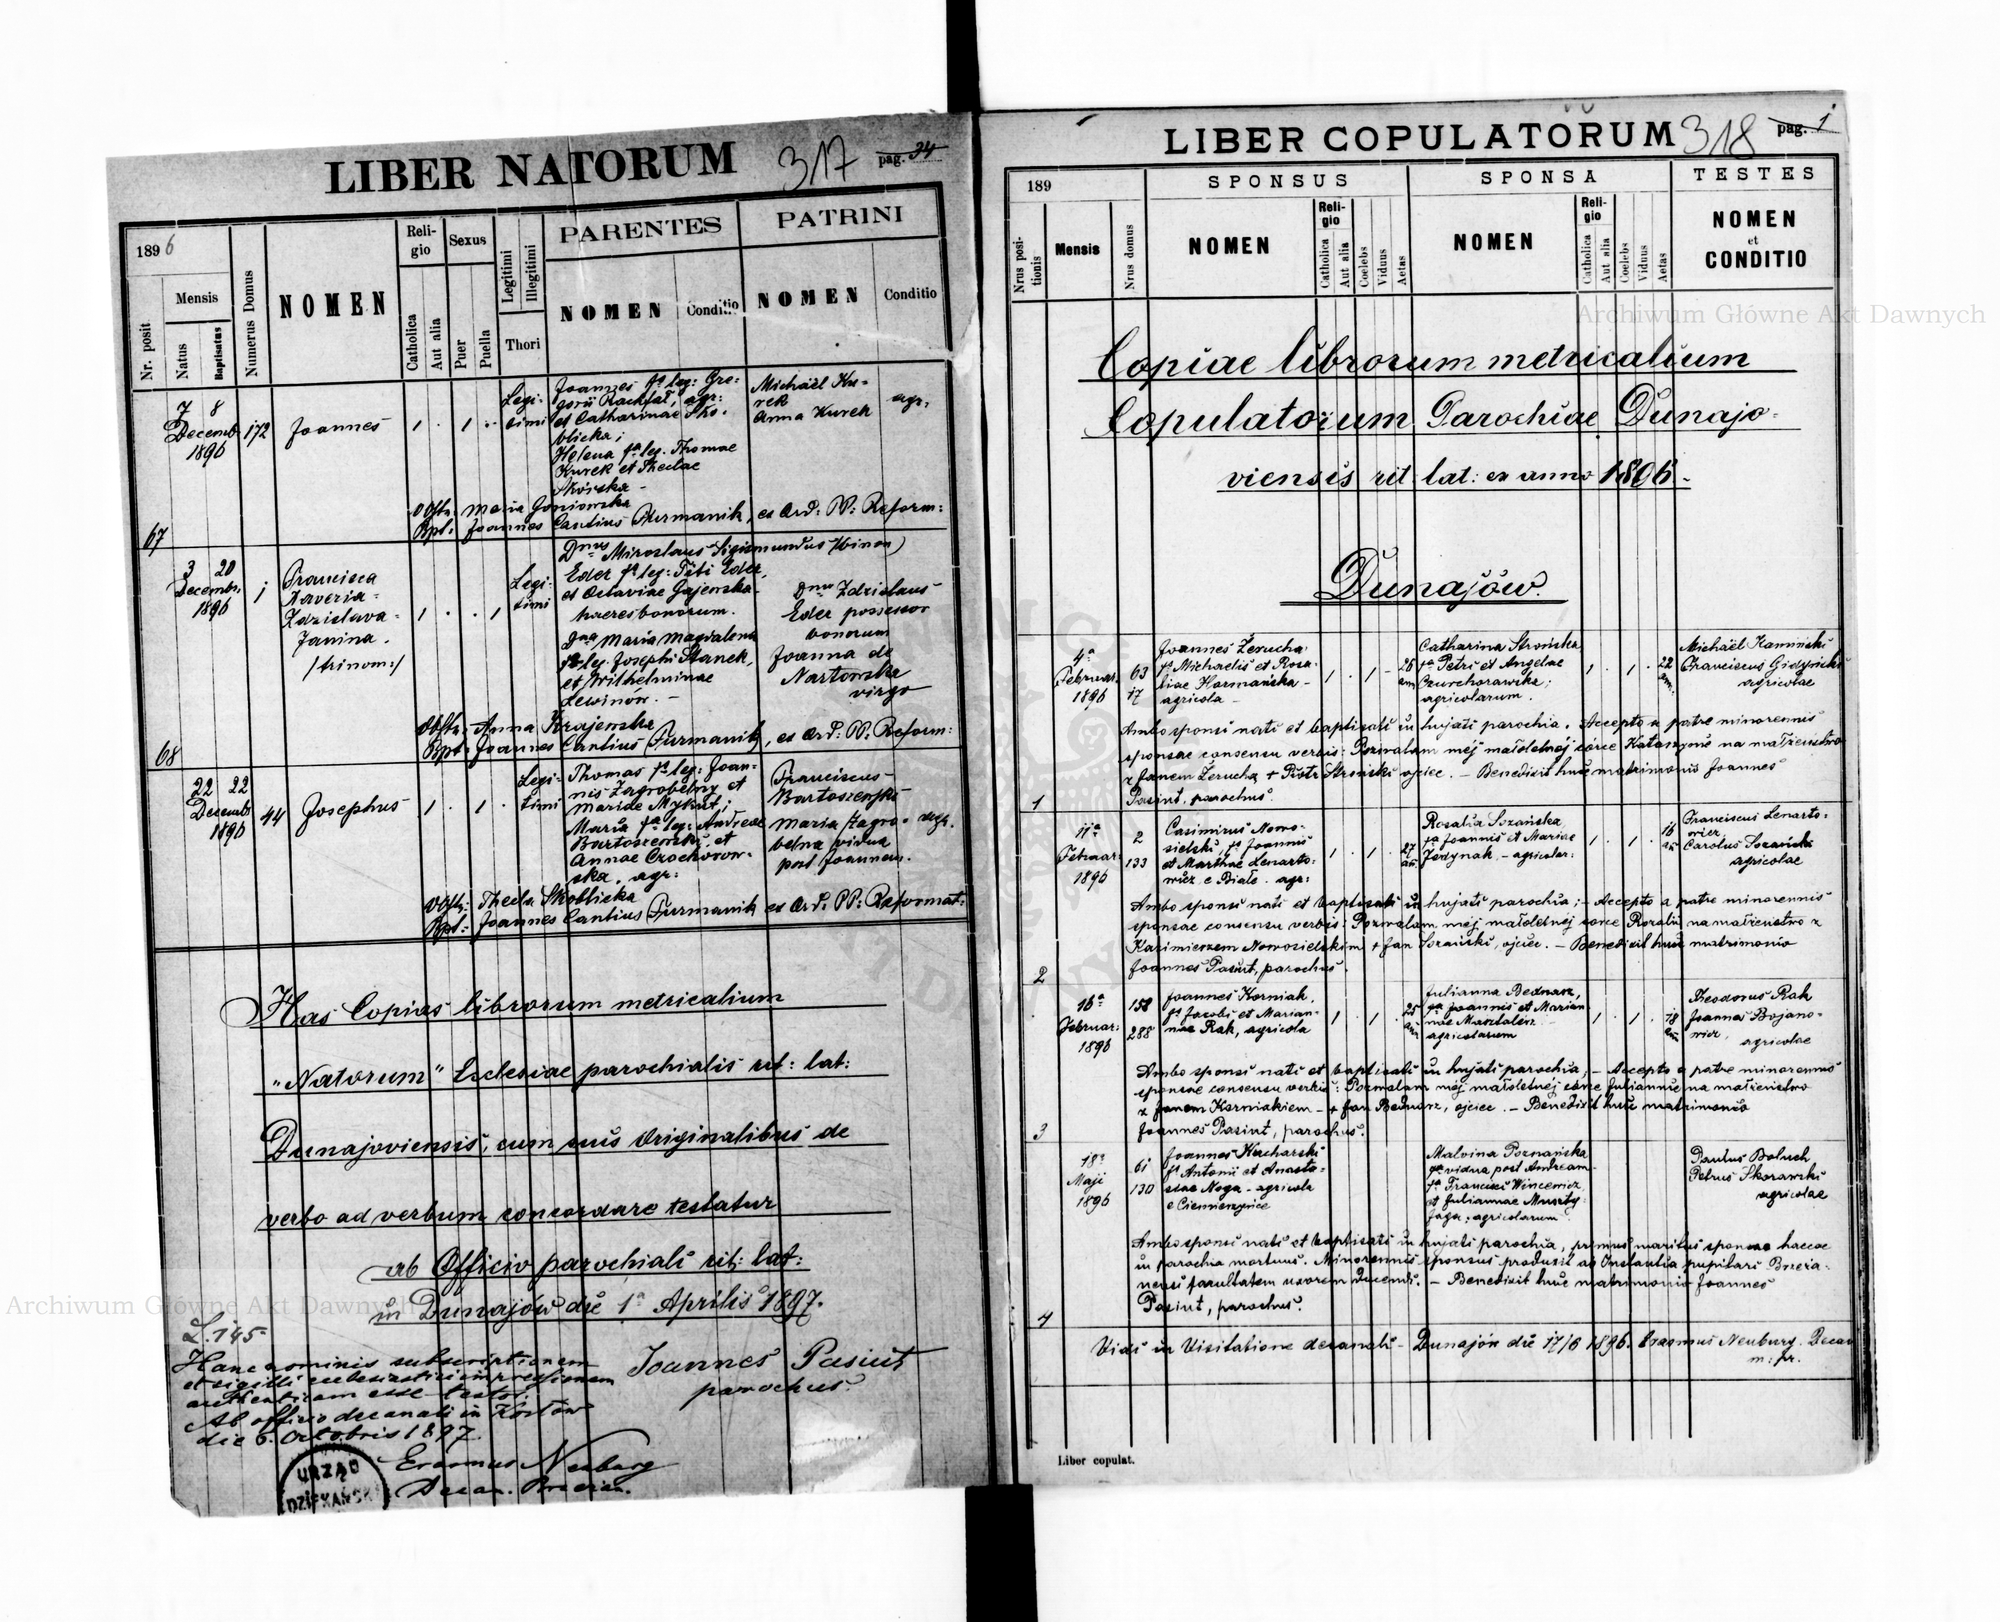 LIBER NATORUM 317 pag. 34
1896
Nr. posit
Mensis
Natus
Baptisatus
Numerus Domus
NOMEN
Religio
Catholica
Aut alia
Sexus
Puer
Puella
Legitimi
Illegitimi
Thori
PARENTES
NOMEN
Conditio
PATRINI
NOMEN
Conditio
67
7 8
Decemb.
1896
172
Joannes
1 . 1 .
Legi-
timi
Joannes fs leg: Gre-
gorii Rachfał, agr:
et Catharinae Sko-
blicka;
Helena fa leg. Thomae
Kurek et Theclae
Skórska -
Michaël Ku-
rek
Anna Kurek
agr.
Obstr. Maria Goniowska
Bpt: Joannes Cantius Furmanik, ex Ord: PP: Reform:
68
3 20
Decembr.
1896
1
Francisca
Xaveria-
Zdzislava-
Janina.
/trinom:/
1 . . 1
Legi-
timi
Dnus Miroslaus Sigismundus (binom)
Eder fs leg: Titi Eder,
et Octaviae Gajewska
haeres bonorum.
Dna Maria Magdalena
fa leg. Josephi Stanek,
et Wilhelminae
Lewinów. -
Dnus Zdzislaus
Eder possessor
bonorum
Joanna de
Nartowska
virgo
Obstr. Anna Krajewska
Bpt: Joannes Cantius Furmanik, ex Ord: PP: Reform:
22 22
Decemb.
1896
44
Josephus
1 . 1 .
Legi-
timi
Thomas fs leg: Joan-
nis Zagrobelny et
Mariae Mykut;
Maria fa leg: Andreae
Bartoszewski, et
Annae Czochrow-
ska, agr:
Franciscus
Bartoszewski
Maria Zagro-
belna vidua
post Joannem.
agr.
Obstr: Thecla Skoblicka
Bpt: Joannes Cantius Furmanik ex Ord: PP: Reformat:
Has Copias librorum metricalium
"Natorum" Ecclesiae parochialis rit: lat:
Dunajoviensis, cum suis Originalibus de
verbo ad verbum concordare testatur
ab Officio parochiali rit: lat:
in Dunajów die 1a Aprilis 1897.
Joannes Pasiut
parochus.
L. 145
Hanc nominis subscriptionem
et sigilli ecclesiastici impressionem
authenticam esse testor.
Ab officio decanali in Kozłów
die 6. Octobris 1897.
Erasmus Neuburg
Decan. Brzezan.
URZĄD
DZIEKAŃSKI
LIBER COPULATORUM 318 pag. 1
189
Nrus positionis
Mensis
Nrus domus
SPONSUS
NOMEN
Religio
Catholica
Aut alia
Coelebs
Viduus
Aetas
SPONSA
NOMEN
Religio
Catholica
Aut alia
Coelebs
Viduus
Aetas
TESTES
NOMEN
et
CONDITIO
Copiae librorum metricalium
Copulatorum Parochiae Dunajo-
viensis rit: lat: ex anno 1896.
Dunajów.
1
4a
Februar.
1896
63
17
Joannes Żerucha
fs Michaelis et Rosa-
liae Harmańska -
agricola -
1 . 1 - 26 ann
Catharina Strońska
fa Petri et Angelae
Czurchorawska;
agricolarum.
1 . 1 . 22 ann.
Michaël Kamiński
Franciscus Gidyński
agricolae
Ambo sponsi nati et baptisati in hujati parochia. Accepto a patre minorennis
sponsae consensu verbis: Pozwalam mej małoletnej córce Katarzynie na małżeństwo
z Janem Żerucha + Piotr Stroński ojciec. - Benedixit huic matrimonio Joannes
Pasiut, parochus.
2
11a
Februar.
1896
2
133
Casimirus Nowo-
sielski, fs Joannis
et Marthae Lenarto-
wicz e Białe. agr:
1 . 1 . 27 an.
Rosalia Sozańska,
fa Joannis et Mariae
Jedynak, - agricolar:
1 . 1 . 16 an
Franciscus Lenarto-
wicz
Carolus Sozański
agricolae
Ambo sponsi nati et baptisati in hujati parochia; - Accepto a patre minorennis
sponsae consensu verbis: Pozwalam mej małoletnej córce Rozalii na małżeństwo z
Kazimierzem Nowosielskim + Jan Sozański, ojciec. - Benedixit huic matrimonio
Joannes Pasiut, parochus.
3
16a
Februar:
1896
158
288
Joannes Korniak,
fs Jacobi et Marian-
nae Rak, agricola
1 . 1 . 25 an
Julianna Bednarz,
fa Joannis et Marian-
nae Marszalek -
agricolarum
1 . 1 . 18 an
Theodorus Rak
Joannes Bojano-
wicz,
agricolae
Ambo sponsi nati et baptisati in hujati parochia; - Accepto a patre minorennis
sponsae consensu verbis: Pozwalam mej małoletnej córce Juliannie na małżeństwo
z Janem Korniakiem - + Jan Bednarz, ojciec. - Benedixit huic matrimonio
Joannes Pasiut, parochus.
4
18a
Maji
1896
61
130
Joannes Kucharski
fs Antonii et Anasta-
siae Noga - agricola
e Ciemierzynce
Malvina Poznańska
fa vidua post Andream
fa Francisci Wincewicz
et Juliannae
agricolarum.
Paulus Boluch
Petrus Skorawski
agricolae
Ambo sponsi nati et baptisati in hujati parochia, primus maritus sponsae haecce
in parochia mortuus. Minorennis sponsus produxit ab Instantia pupilari Brzeża-
nensi facultatem uxorem ducendi. - Benedixit huic matrimonio Joannes
Pasiut, parochus.
Vidi in Visitatione decanali - Dunajów die 17/6 1896. Erasmus Neuburg. Decan
m. pr.
Liber copulat.
Archiwum Główne Akt Dawnych
Archiwum Główne Akt Dawnych